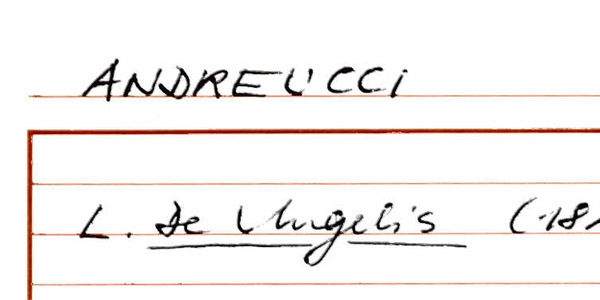 ANDREUCCI
L. De Angelis (181